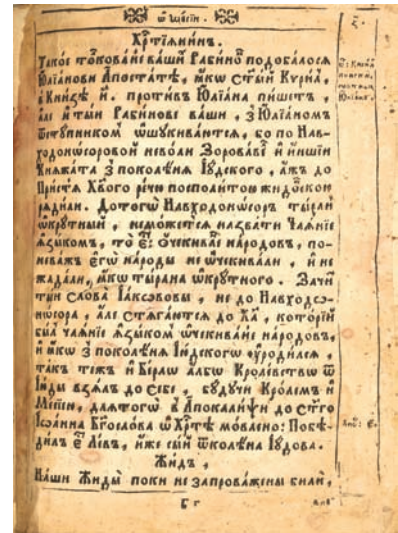 ѿ Месїи.
Хрⷭ҇тїѧнинъ.
Такоє толкованїе ваши Рабинѡ подобалосѧ
Юлїанови Апостатѣ, ꙗкѡ ст҃ый Курил,
в Книзѣ и҃. противъ Юлїана пишетъ,
але и тыи Рабинове ваши, з Юлїаномъ
ѿступникомъ ѡшукиваютсѧ, бо по Навъ-
ходоносоровой неволи Зоровавє и иншїи
Кнѧжата з поколѣнїѧ Іудского, ажъ до
Пристѧ Хв҃ого рѣчю посполитою жидовскою
рѧдили. Дотогѡ Навъходонѡсоръ тыран
ѡкрутный, неможетсѧ назвати Чаѧнїе
ꙗзыкомъ, то є҃: очекиванїе народовъ, по-
неважъ єгѡ народы не ѡчекивали, и не
жадали, ꙗкѡ тырана ѡкрутного. Зачи
тыи слова Іаковѡвы, не до Навходо-
нѡсора, але стѧгаютсѧ до Х҃а, которїй
былъ чаѧнїе ꙗзыкомъ ѡчекиванїе народовъ,
и ꙗкѡ з поколѣнїѧ Іюдского уродилсѧ,
такъ тежъ и Берлѡ албѡ Кролевствѡ ѿ
Іюды взѧлъ до себе, будучи Кролемъ и
Месїею, длѧтогѡ в Апокалипси до ст҃го
Іоанна Бг҃ослова ѡ Хрⷭ҇тѣ мовлено: Побѣ-
дилъ є҃ Левъ, иже сый ѿколѣна Іудова.
Жидъ,
Наши Жиды поки не запроважены были,
Б г